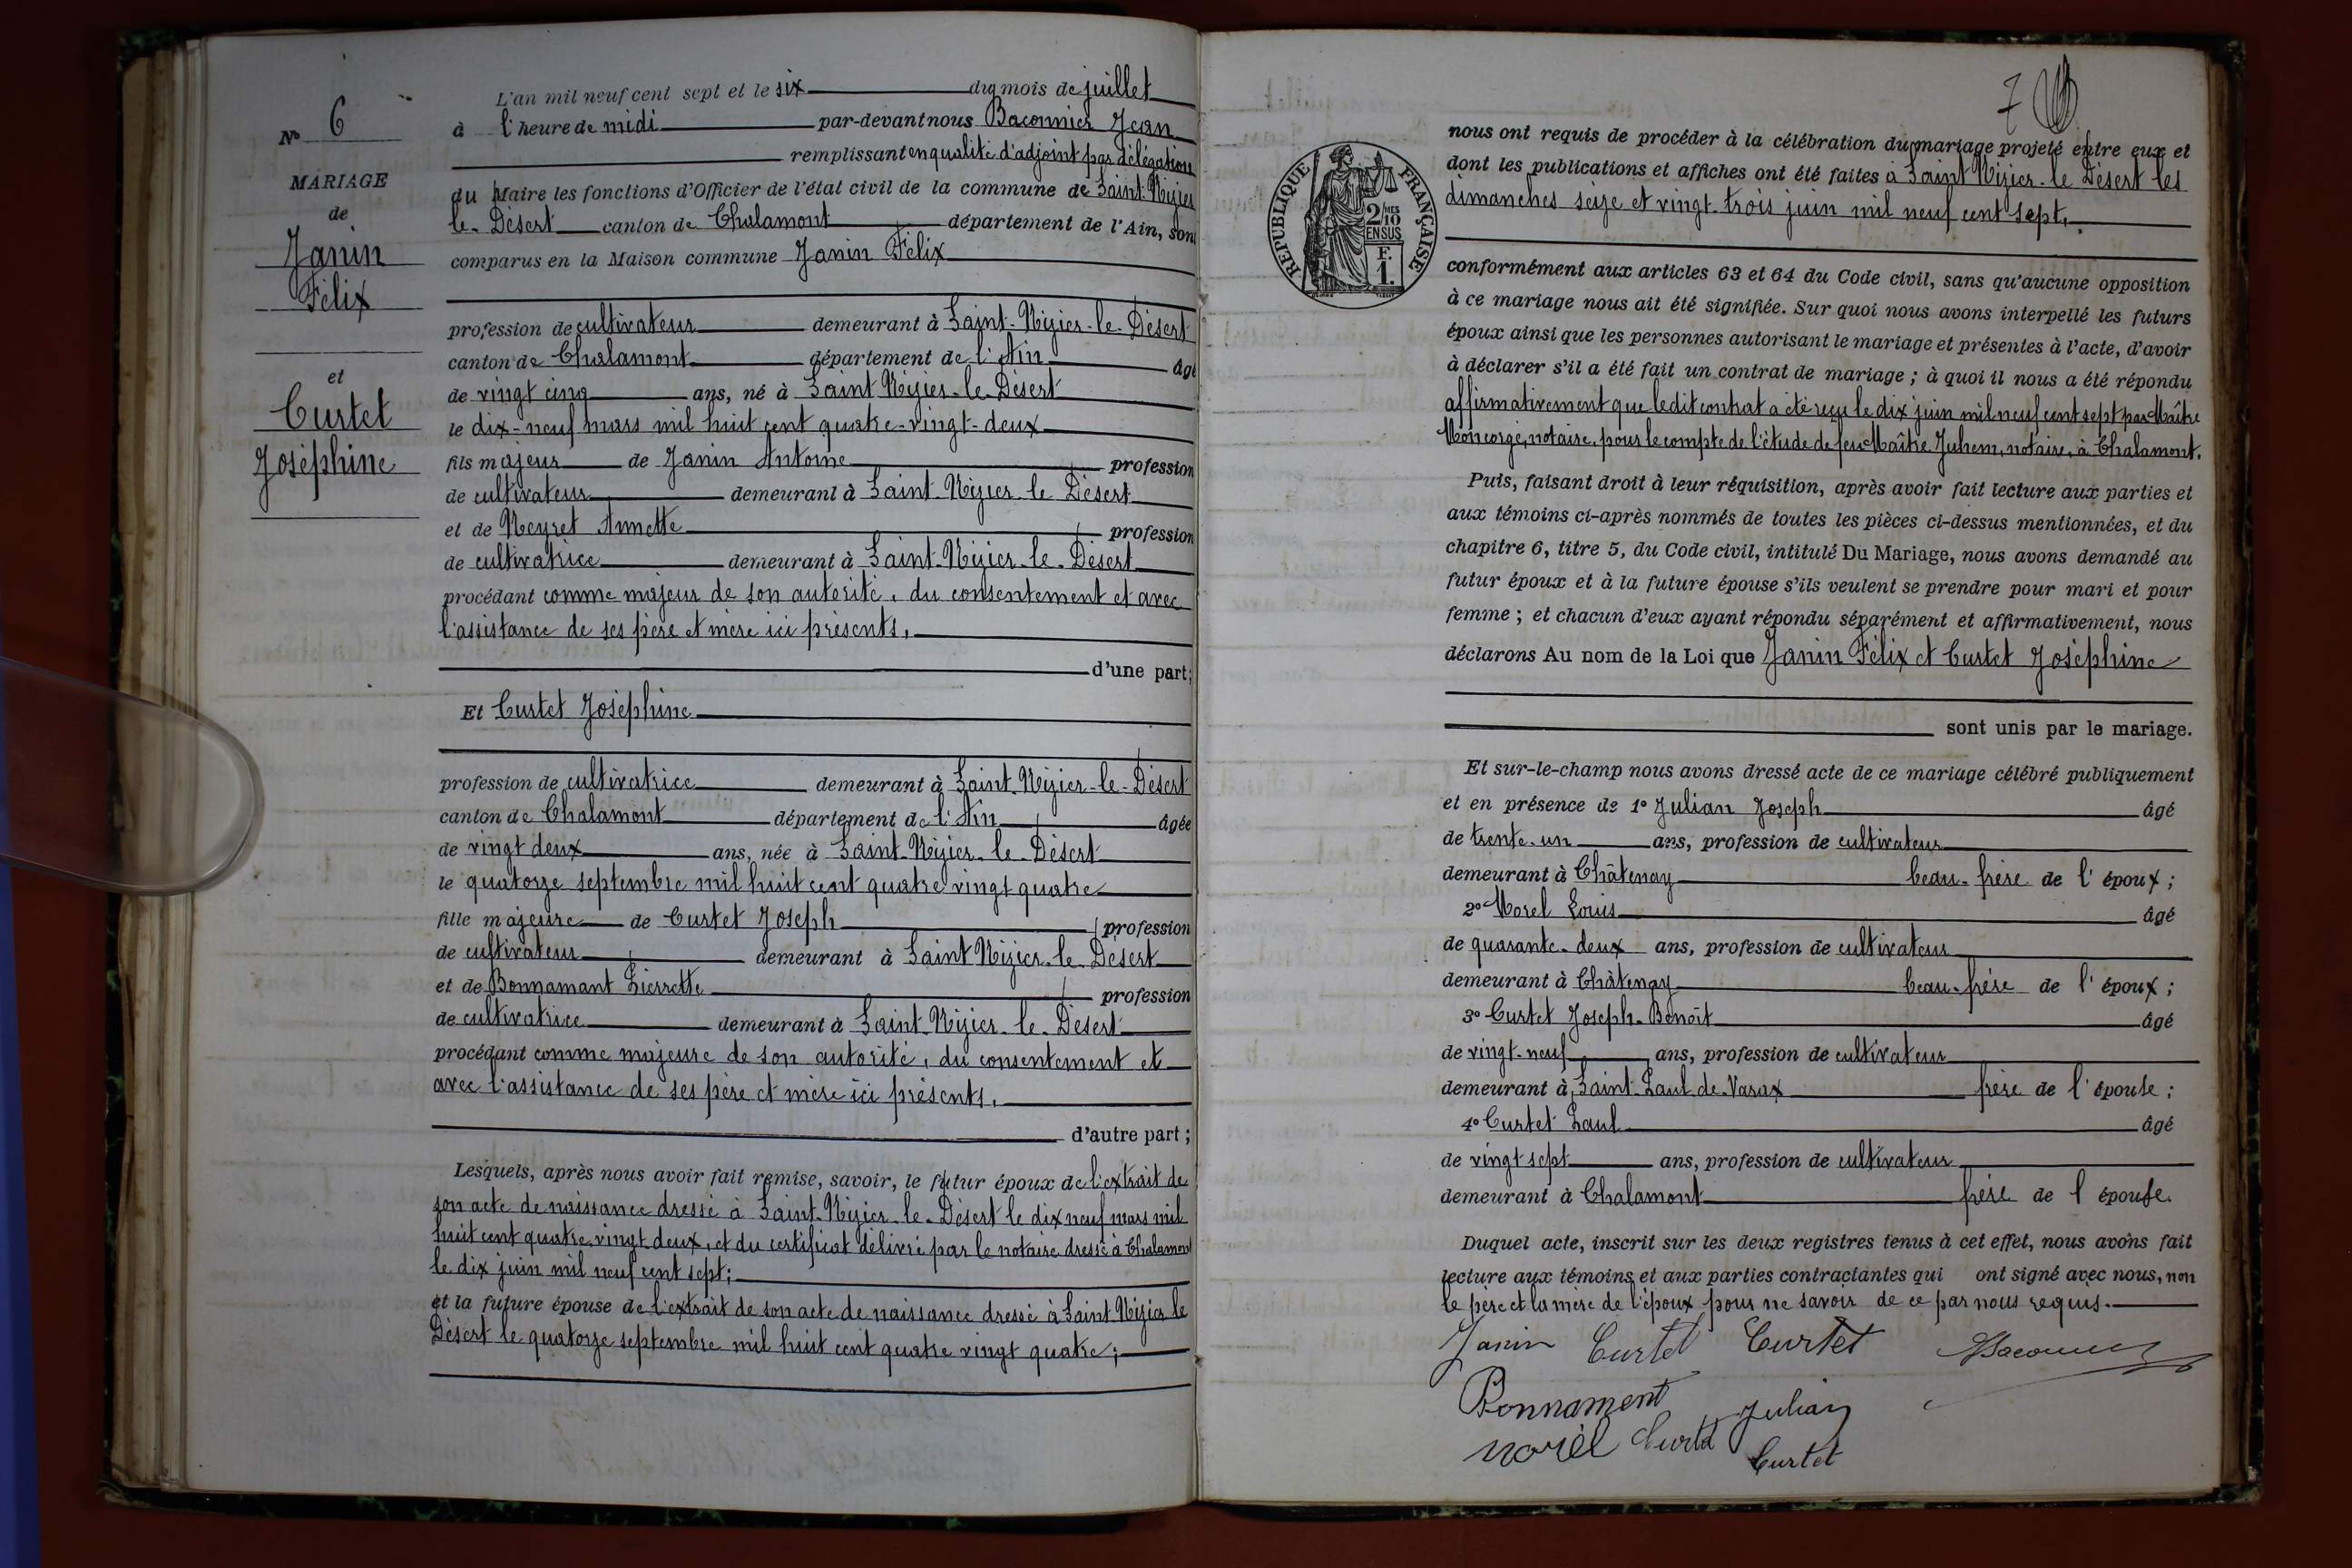 N° 6
MARIAGE
de
Janin
Félix
et
Curtet
Joséphine
L'an mil neuf cent sept et le six du mois de juillet
à l'heure de midi par-devant nous Baconnier Jean
remplissant en qualité d'adjoint par délégation
du Maire les fonctions d'Officier de l'état civil de la commune de Saint-Nizier
le-Désert canton de Chalamont département de l'Ain, sont
comparus en la Maison commune Janin Félix
profession de cultivateur demeurant à Saint-Nizier-le-Désert
canton de Chalamont département de l'Ain âgé
de vingt cinq ans, né à Saint Nizier-le-Désert
le dix-neuf mars mil huit cent quatre-vingt-deux
fils majeur de Janin Antoine profession
de cultivateur demeurant à Saint-Nizier-le Désert
et de Neyret Annette profession
de cultivatrice demeurant à Saint-Nizier-le-Désert
procédant comme majeur de son autorité, du consentement et avec
l'assistance de ses père et mère ici présents,
d'une part;
Et Curtet Joséphine
profession de cultivatrice demeurant à Saint-Nizier-le-Désert
canton de Chalamont département de l'Ain âgée
de vingt deux ans, née à Saint-Nizier-le-Désert
le quatorze septembre mil huit cent quatre vingt quatre
fille majeure de Curtet Joseph profession
de cultivateur demeurant à Saint Nizier-le-Désert
et de Bonnamant Pierrette profession
de cultivatrice demeurant à Saint-Nizier-le-Désert
procédant comme majeure de son autorité, du consentement et
avec l'assistance de ses père et mère ici présents,
d'autre part;
Lesquels, après nous avoir fait remise, savoir, le futur époux de l'extrait de
son acte de naissance dressé à Saint-Nizier-le-Désert le dix neuf mars mil
huit cent quatre vingt deux, et du certificat délivré par le notaire dressé à Chalamont
le dix juin mil neuf cent sept;
et la future épouse de l'extrait de son acte de naissance dressé à Saint-Nizier le
Désert le quatorze septembre mil huit cent quatre vingt quatre;
7
RÉPUBLIQUE FRANÇAISE
2/10 MES
EN SUS
F.
1.
nous ont requis de procéder à la célébration du mariage projeté entre eux et
dont les publications et affiches ont été faites à Saint Nizier-le Désert les
dimanches seize et vingt-trois juin mil neuf cent sept,
conformément aux articles 63 et 64 du Code civil, sans qu'aucune opposition
à ce mariage nous ait été signifiée. Sur quoi nous avons interpellé les futurs
époux ainsi que les personnes autorisant le mariage et présentes à l'acte, d'avoir
à déclarer s'il a été fait un contrat de mariage ; à quoi il nous a été répondu
affirmativement que ledit contrat a été reçu le dix juin mil neuf cent sept par Maître
Moncorgé, notaire, pour le compte de l'étude de feu Maître Juhem, notaire, à Chalamont.
Puis, faisant droit à leur réquisition, après avoir fait lecture aux parties et
aux témoins ci-après nommés de toutes les pièces ci-dessus mentionnées, et du
chapitre 6, titre 5, du Code civil, intitulé Du Mariage, nous avons demandé au
futur époux et à la future épouse s'ils veulent se prendre pour mari et pour
femme ; et chacun d'eux ayant répondu séparément et affirmativement, nous
déclarons Au nom de la Loi que Janin Félix et Curtet Joséphine
sont unis par le mariage.
Et sur-le-champ nous avons dressé acte de ce mariage célébré publiquement
et en présence de 1° Julian Joseph âgé
de trente-un ans, profession de cultivateur
demeurant à Châtenay beau-frère de l'époux;
2° Morel Louis âgé
de quarante-deux ans, profession de cultivateur
demeurant à Châtenay beau-frère de l'époux;
3° Curtet Joseph-Benoît âgé
de vingt-neuf ans, profession de cultivateur
demeurant à Saint-Paul-de-Varax frère de l'épouse;
4° Curtet Paul âgé
de vingt sept ans, profession de cultivateur
demeurant à Chalamont frère de l'épouse.
Duquel acte, inscrit sur les deux registres tenus à cet effet, nous avons fait
lecture aux témoins et aux parties contractantes qui ont signé avec nous, non
le père et la mère de l'époux pour ne savoir de ce par nous requis.
Janin Curtet Curtet Baconnier
Bonnament
Morel Curtet Julian
Curtet